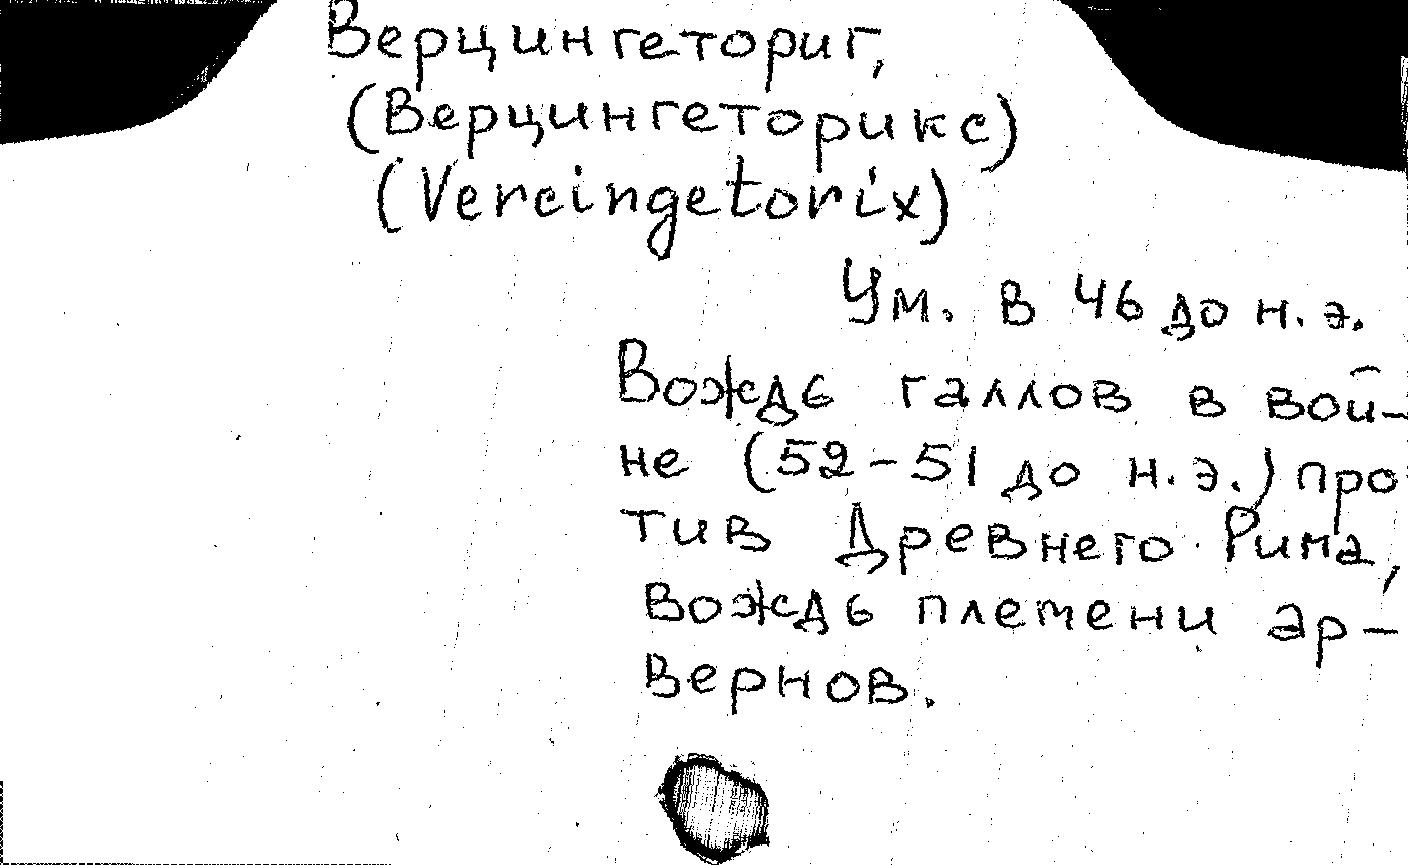 Верцингеториг,
(Верцингеторикс)
(Vercingetorix)
Ум. в 46 до н.э.
Вождь галлов в вой-
не (52-51 до н.э.) про
тив Древнего Рима,
вождь племени ар-
вернов.